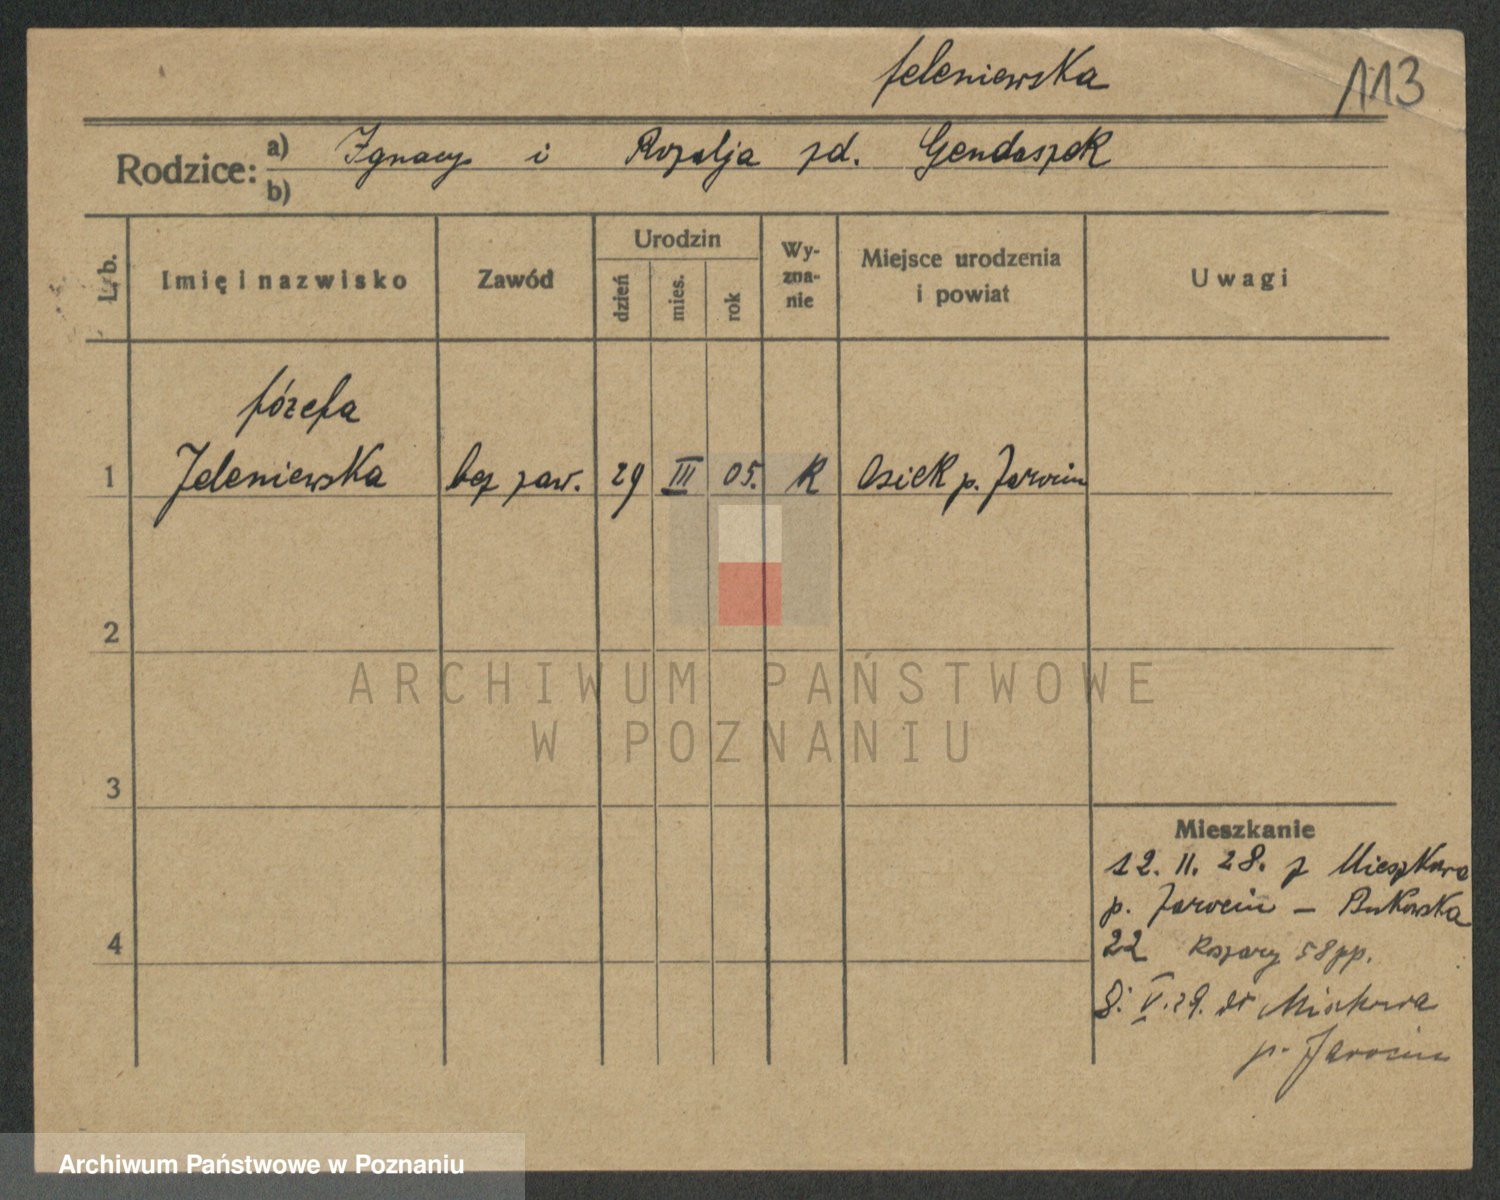 Jeleniewska
113
Rodzice: a) Ignacy i Rozalja zd. Gendaszek
b)
L. b.
Imię i nazwisko
Zawód
Urodzin
dzień
mies.
rok
Wy-
zna-
nie
Miejsce urodzenia
i powiat
Uwagi
Józefa
1 Jeleniewska bez zaw. 29 III 05. K Osiek p. Jarocin
2
3
4
Mieszkanie
12. II. 28. z Mieszkowa
p. Jarocin – Bukowska
22 Koszary 58pp.
8. V. 29. do
p. Jarocin
ARCHIWUM PAŃSTWOWE
W POZNANIU
Archiwum Państwowe w Poznaniu